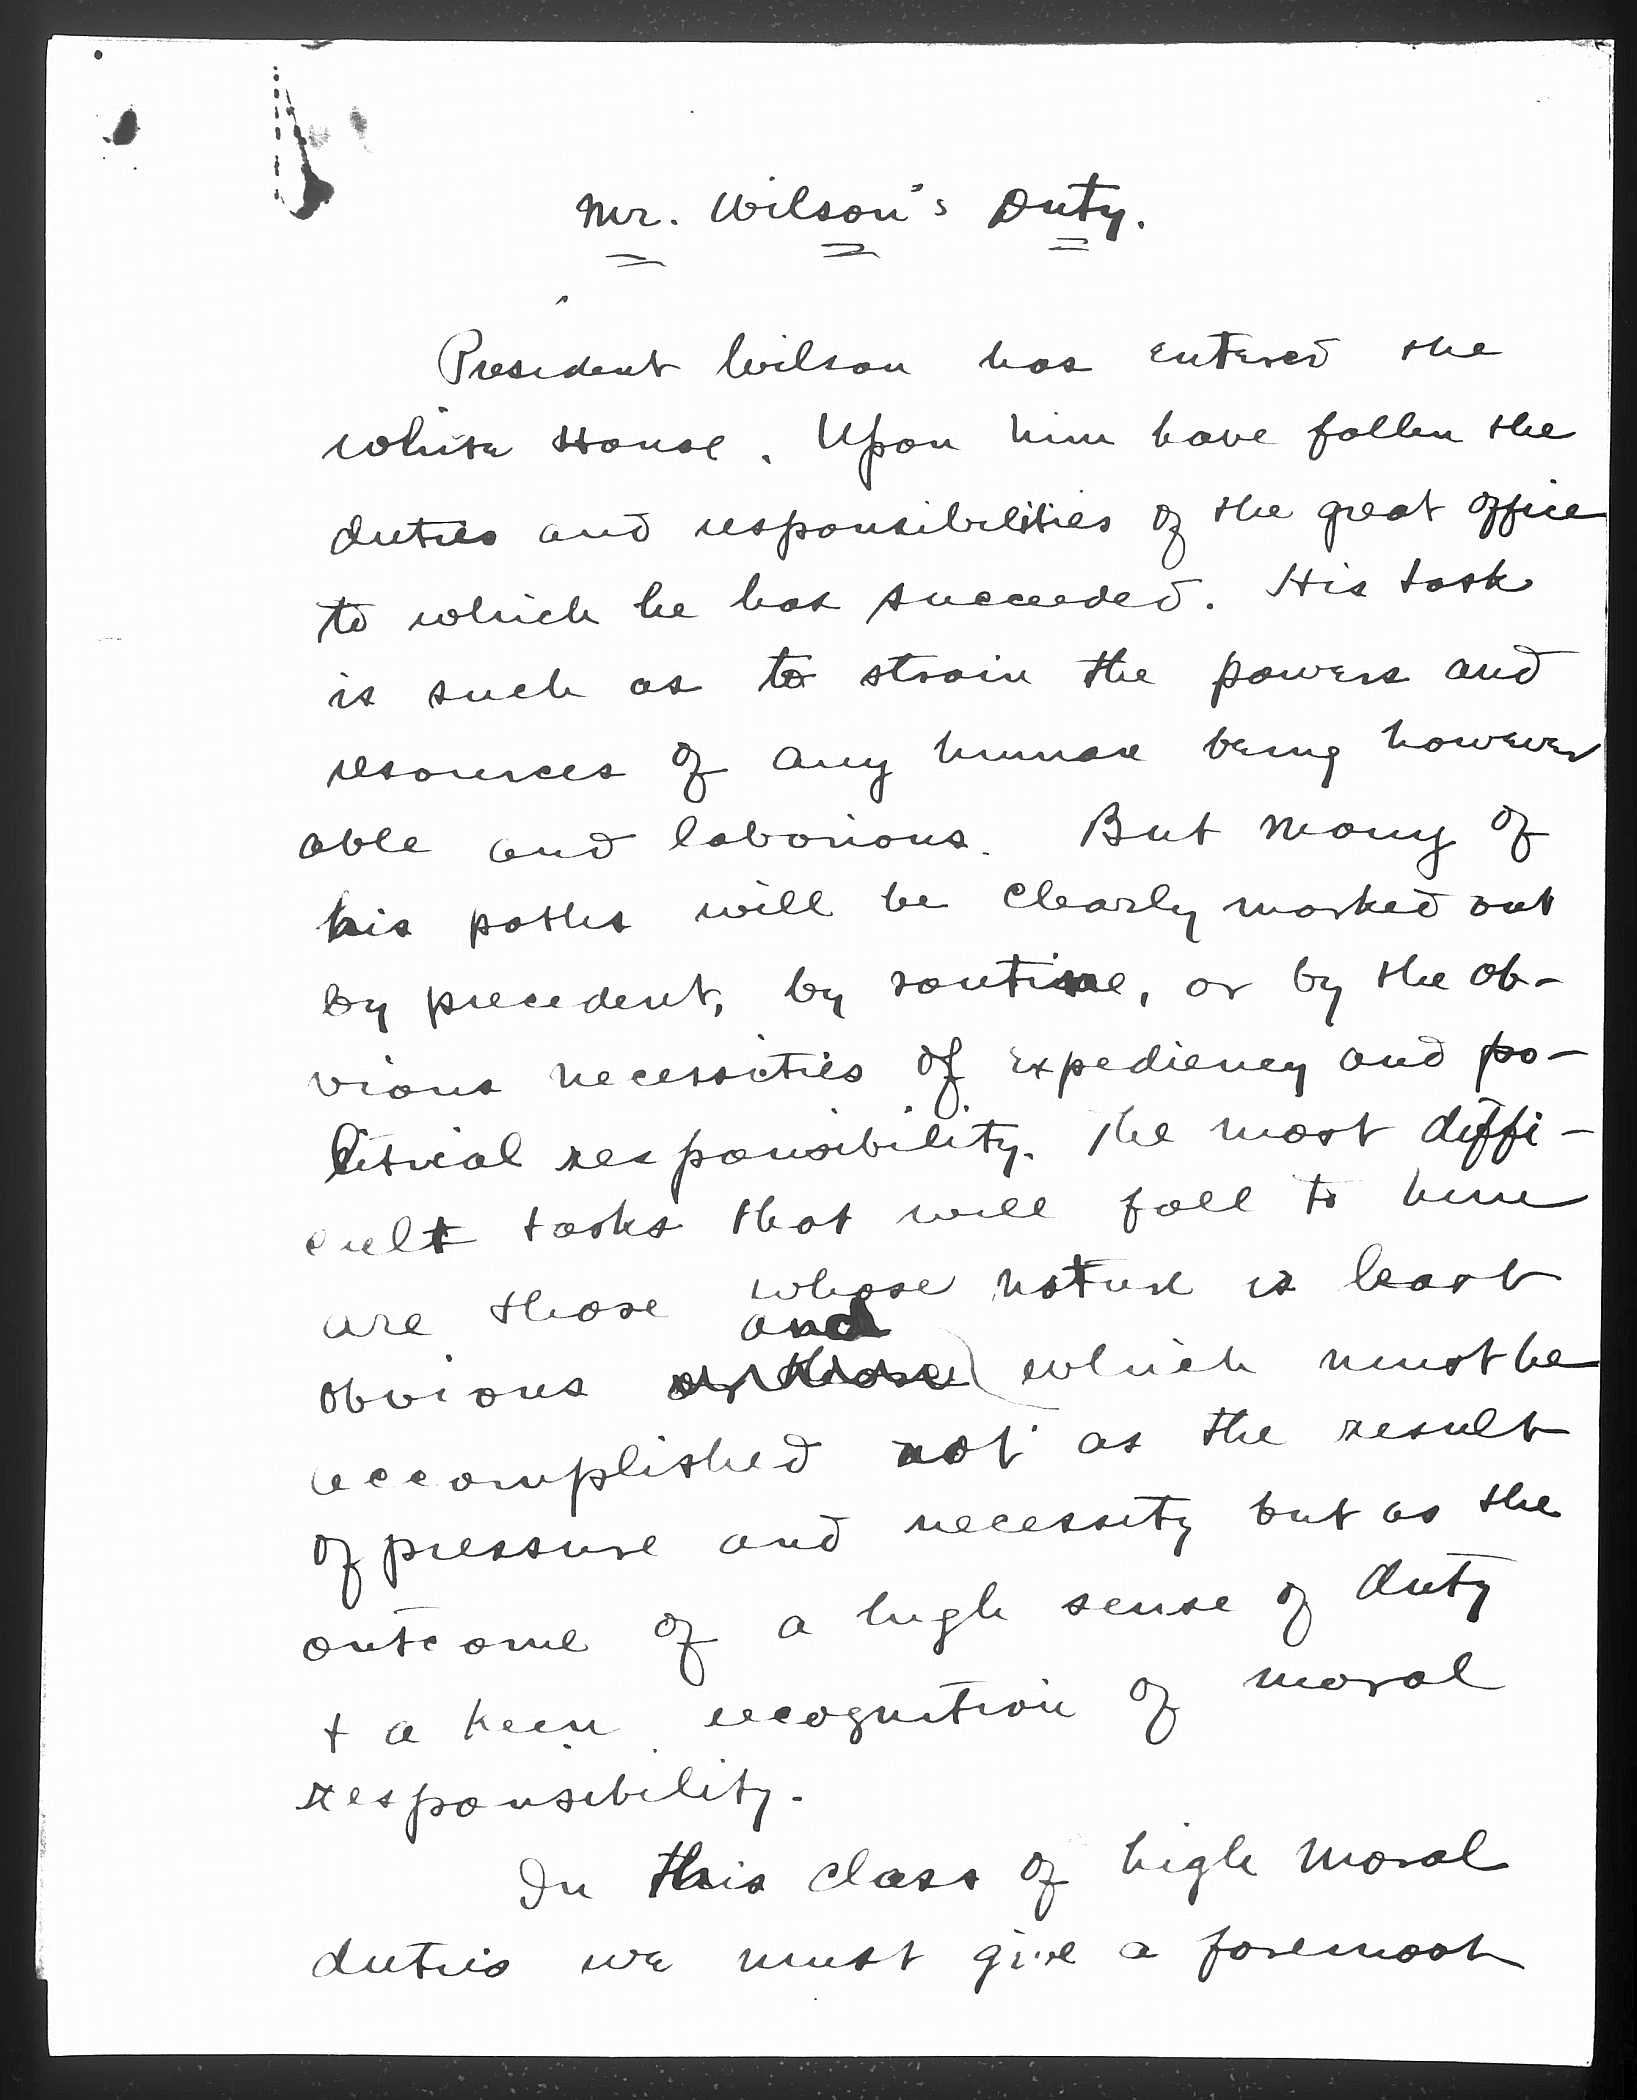 Mr. Wilson's Duty.
President Wilson has entered the
White House. Upon him have fallen the
duties and responsibilities of the great office
to which he has succeeded. His task
is such as to strain the powers and
resources of any human being however
able and laborious. But many of
his paths will be clearly marked out
by precedent, by routine, or by the ob-
vious necessities of expediency and po-
litical responsibility. The most diffi-
cult tasks that will fall to him
are those whose nature is least
and
obvious or those which must be
accomplished not as the result
of pressure and necessity but as the
outcome of a high sense of duty
+ a keen recognition of moral
responsibility.
In this class of high moral
duties we must give a foremost